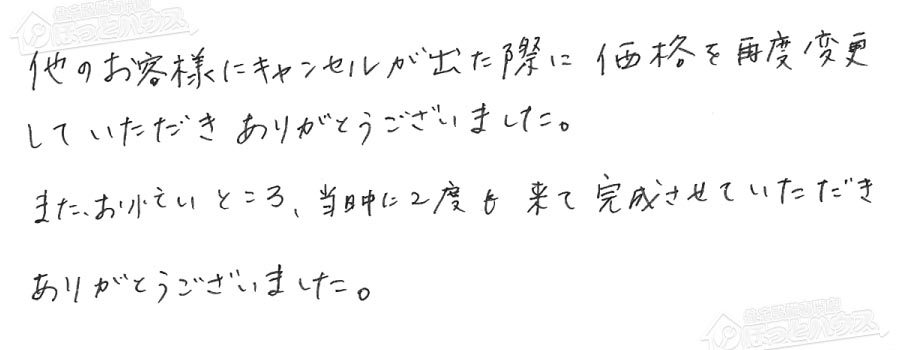 ほっとハウス
他のお客様にキャンセルが出た際に 価格を再度変更
していただき ありがとうございました。
また、お忙しいところ、当日中に2度も 来て 完成させていただき
ありがとうございました。
ほっとハウス